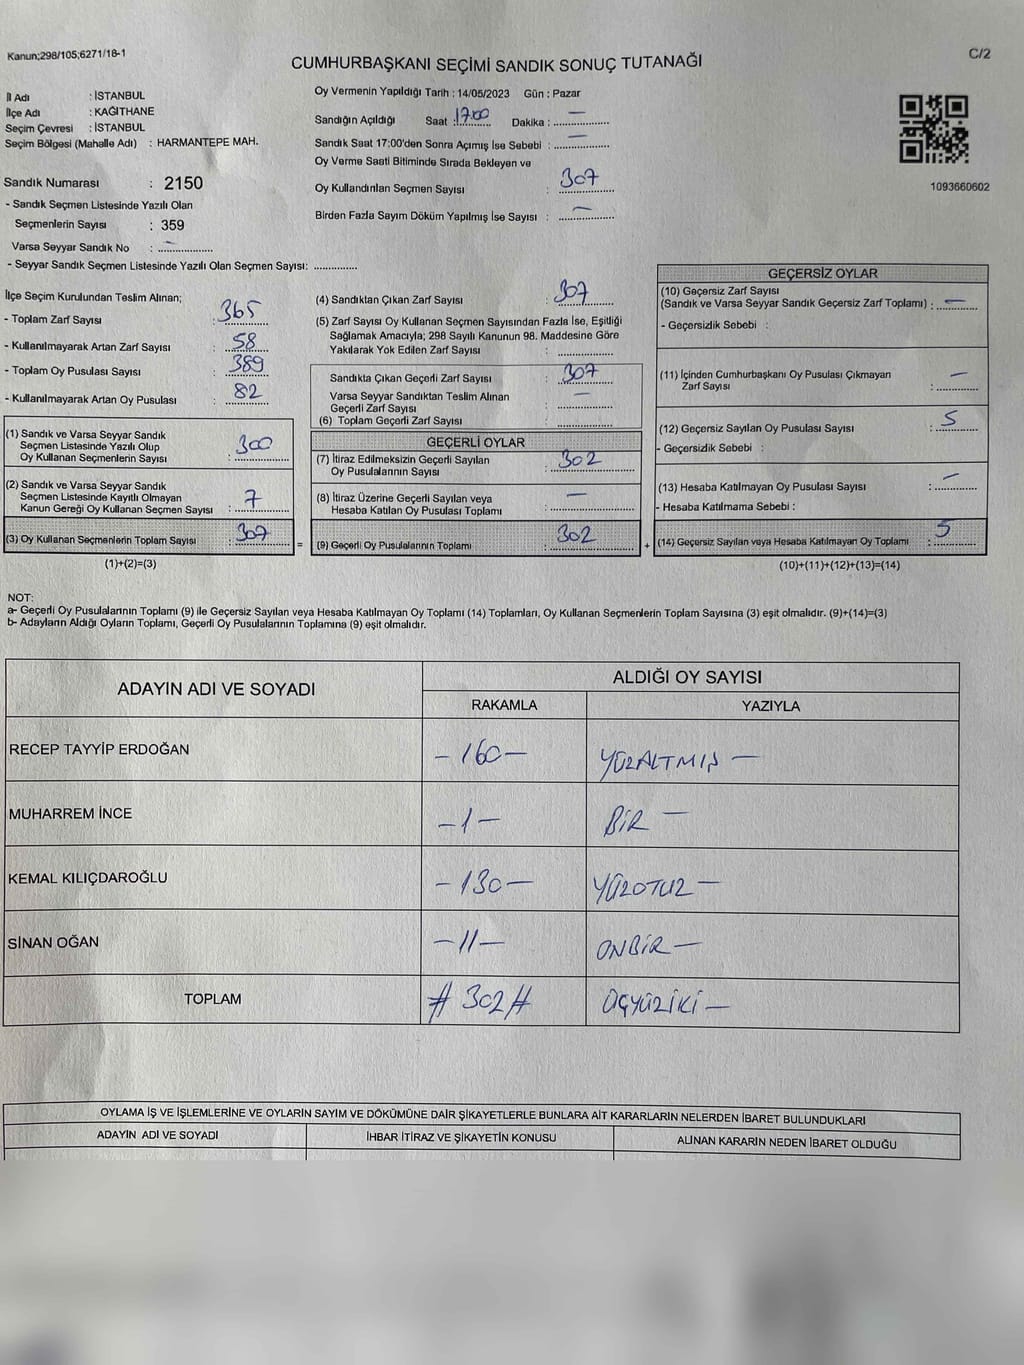 Kanun;298/105;6271/18-1
C/2
CUMHURBAŞKANI SEÇİMİ SANDIK SONUÇ TUTANAĞI
İl Adı : İSTANBUL
İlçe Adı : KAĞITHANE
Seçim Çevresi : İSTANBUL
Seçim Bölgesi (Mahalle Adı) : HARMANTEPE MAH.
Sandık Numarası : 2150
- Sandık Seçmen Listesinde Yazılı Olan
Seçmenlerin Sayısı : 359
Varsa Seyyar Sandık No : –
- Seyyar Sandık Seçmen Listesinde Yazılı Olan Seçmen Sayısı: ..............
Oy Vermenin Yapıldığı Tarih : 14/05/2023 Gün : Pazar
Sandığın Açıldığı Saat : 17.00 Dakika : —
Sandık Saat 17:00'den Sonra Açımış İse Sebebi : —
Oy Verme Saati Bitiminde Sırada Bekleyen ve
Oy Kullandırılan Seçmen Sayısı : 307
Birden Fazla Sayım Döküm Yapılmış İse Sayısı : —
1093660602
İlçe Seçim Kurulundan Teslim Alınan;
- Toplam Zarf Sayısı : 365
- Kullanılmayarak Artan Zarf Sayısı : 58
- Toplam Oy Pusulası Sayısı : 389
- Kullanılmayarak Artan Oy Pusulası : 82
(1) Sandık ve Varsa Seyyar Sandık
Seçmen Listesinde Yazılı Olup
Oy Kullanan Seçmenlerin Sayısı : 300
(2) Sandık ve Varsa Seyyar Sandık
Seçmen Listesinde Kayıtlı Olmayan
Kanun Gereği Oy Kullanan Seçmen Sayısı : 7
(3) Oy Kullanan Seçmenlerin Toplam Sayısı : 307
(1)+(2)=(3)
=
(4) Sandıktan Çıkan Zarf Sayısı : 307
(5) Zarf Sayısı Oy Kullanan Seçmen Sayısından Fazla İse, Eşitliği
Sağlamak Amacıyla; 298 Sayılı Kanunun 98. Maddesine Göre
Yakılarak Yok Edilen Zarf Sayısı : ..............
Sandıkta Çıkan Geçerli Zarf Sayısı : 307
Varsa Seyyar Sandıktan Teslim Alınan —
Geçerli Zarf Sayısı : ..............
(6) Toplam Geçerli Zarf Sayısı : ..............
GEÇERLİ OYLAR
(7) İtiraz Edilmeksizin Geçerli Sayılan
Oy Pusulalarının Sayısı : 302
(8) İtiraz Üzerine Geçerli Sayılan veya
Hesaba Katılan Oy Pusulası Toplamı : —
(9) Geçerli Oy Pusulalarının Toplamı : 302
+
GEÇERSİZ OYLAR
(10) Geçersiz Zarf Sayısı
(Sandık ve Varsa Seyyar Sandık Geçersiz Zarf Toplamı) : —
- Geçersizlik Sebebi :
(11) İçinden Cumhurbaşkanı Oy Pusulası Çıkmayan
Zarf Sayısı : —
(12) Geçersiz Sayılan Oy Pusulası Sayısı : 5
- Geçersizlik Sebebi :
(13) Hesaba Katılmayan Oy Pusulası Sayısı : —
- Hesaba Katılmama Sebebi :
(14) Geçersiz Sayılan veya Hesaba Katılmayan Oy Toplamı : 5
(10)+(11)+(12)+(13)=(14)
NOT:
a- Geçerli Oy Pusulalarının Toplamı (9) ile Geçersiz Sayılan veya Hesaba Katılmayan Oy Toplamı (14) Toplamları, Oy Kullanan Seçmenlerin Toplam Sayısına (3) eşit olmalıdır. (9)+(14)=(3)
b- Adayların Aldığı Oyların Toplamı, Geçerli Oy Pusulalarının Toplamına (9) eşit olmalıdır.
ADAYIN ADI VE SOYADI
ALDIĞI OY SAYISI
RAKAMLA YAZIYLA
RECEP TAYYİP ERDOĞAN – 160 – YÜZALTMIŞ —
MUHARREM İNCE – 1 – BİR —
KEMAL KILIÇDAROĞLU – 130 – YÜZOTUZ —
SİNAN OĞAN – 11 – ONBİR —
TOPLAM # 302 # ÜÇYÜZİKİ —
OYLAMA İŞ VE İŞLEMLERİNE VE OYLARIN SAYIM VE DÖKÜMÜNE DAİR ŞİKAYETLERLE BUNLARA AİT KARARLARIN NELERDEN İBARET BULUNDUKLARI
ADAYIN ADI VE SOYADI İHBAR İTİRAZ VE ŞİKAYETİN KONUSU ALINAN KARARIN NEDEN İBARET OLDUĞU